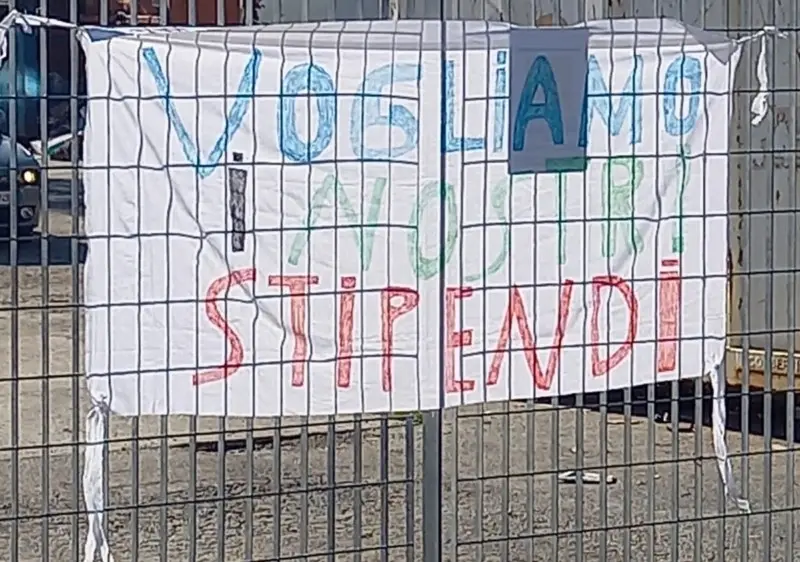 VOGLiAMO
i NOSTRi
STiPENDi